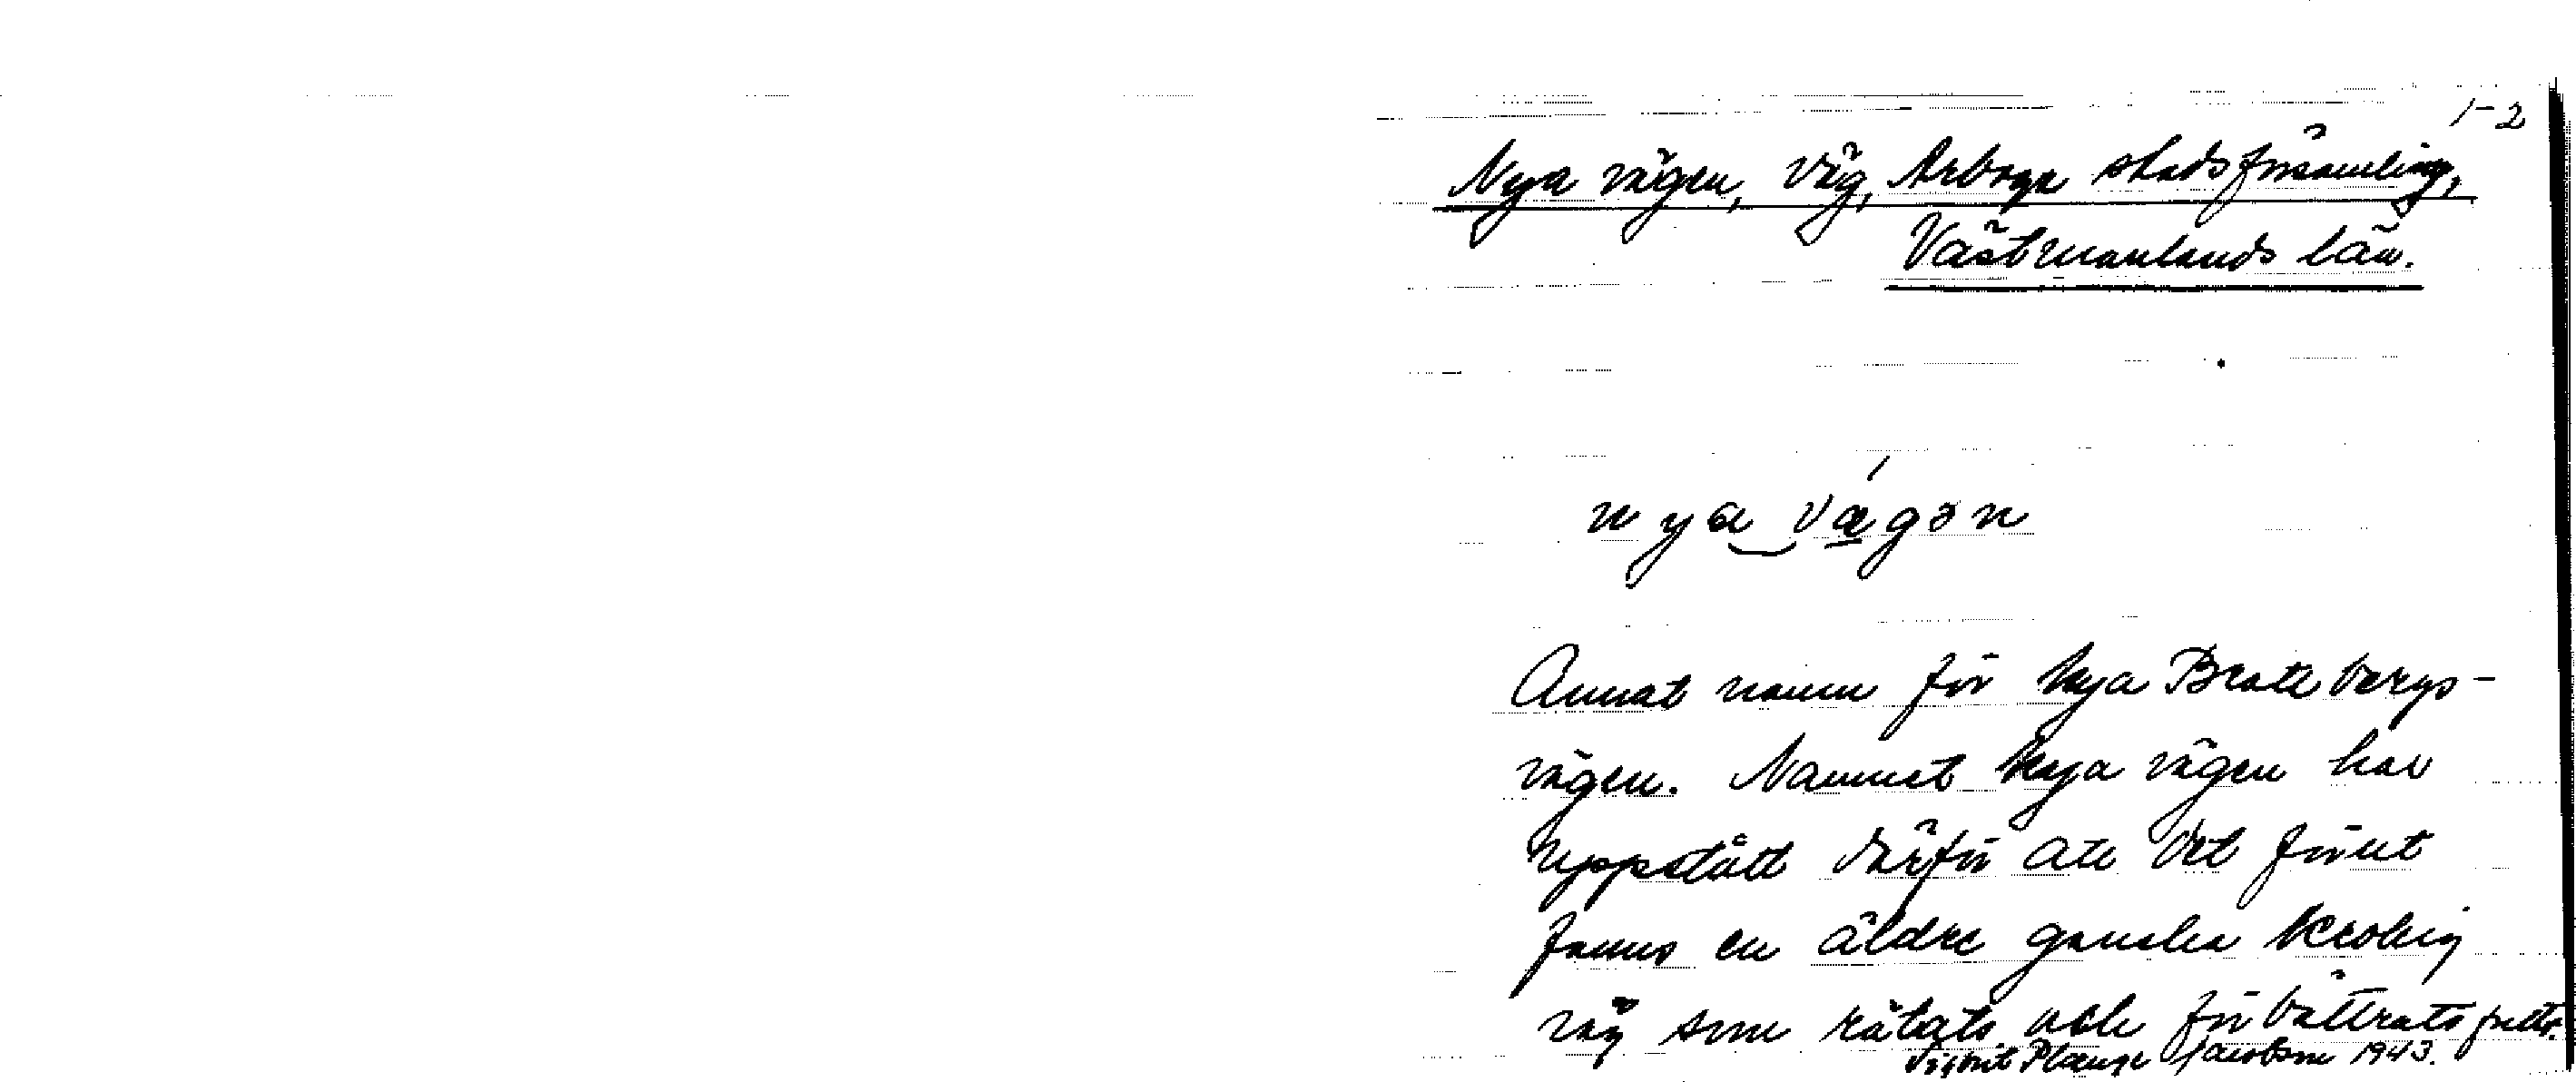 1-2
Nya vägen, väg, Arboga stadsförsamling,
Västmanlands län.
nya vægən
Annat namn för Nya Brattbergs-
vägen. Namnet Nya vägen har
uppstått därför att det förut
fanns en äldre ganska krokig
väg som rätats och förbättrats
Jacobson 1943.